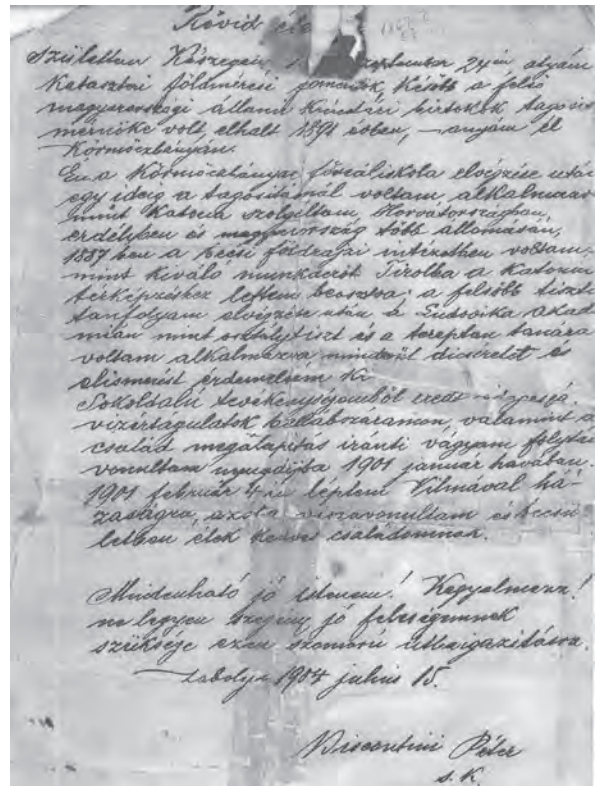 Rövid éle
Születtem Kőszegen 1 szeptember 24én atyám
Kataszteri földmérési főmérnök, később a felső
magyarországi állami Kincstári birtokok tagosító
mérnöke volt, elhalt 1891 évben, – anyám él
Körmöczbányán.
Én a Körmöczbányai főreáliskola elvégzése után
egy ideig a tagósításnál voltam alkalmazva
mint Katona szolgáltam, Horvátországban,
erdélyben és magyarország több állomásán,
1887 ben a bécsi földrajzi intézetben voltam,
mint kiváló munkaerőt Tirolba a Katonai
térképzéshez lettem beosztva; a felsőbb tiszti
tanfolyam elvégzése után a Ludovika akad
mián mint osztálytiszt és a tereptan tanára
voltam alkalmazva mindenütt dicséretet és
elismerést érdemeltem ki
Sokoldalú tevékenységemből eredt
vizértágulatok ballábszáramon, valamint a
család megalapítás iránti vágyam folytán
vonultam nyugdíjba 1901 január havában.
1901 február 4-én léptem Vilmával há-
zaságra azóta viszavonultam és becsü
letben élek kedves családomnak.
Mindenható jó Istenem! Kegyelmezz!
ne legyen szegény jó feleségemnek
szüksége ezen szomorú útbaigazításra.
Zabolya 1904 július 15.
Viscontini Péter
s. K.